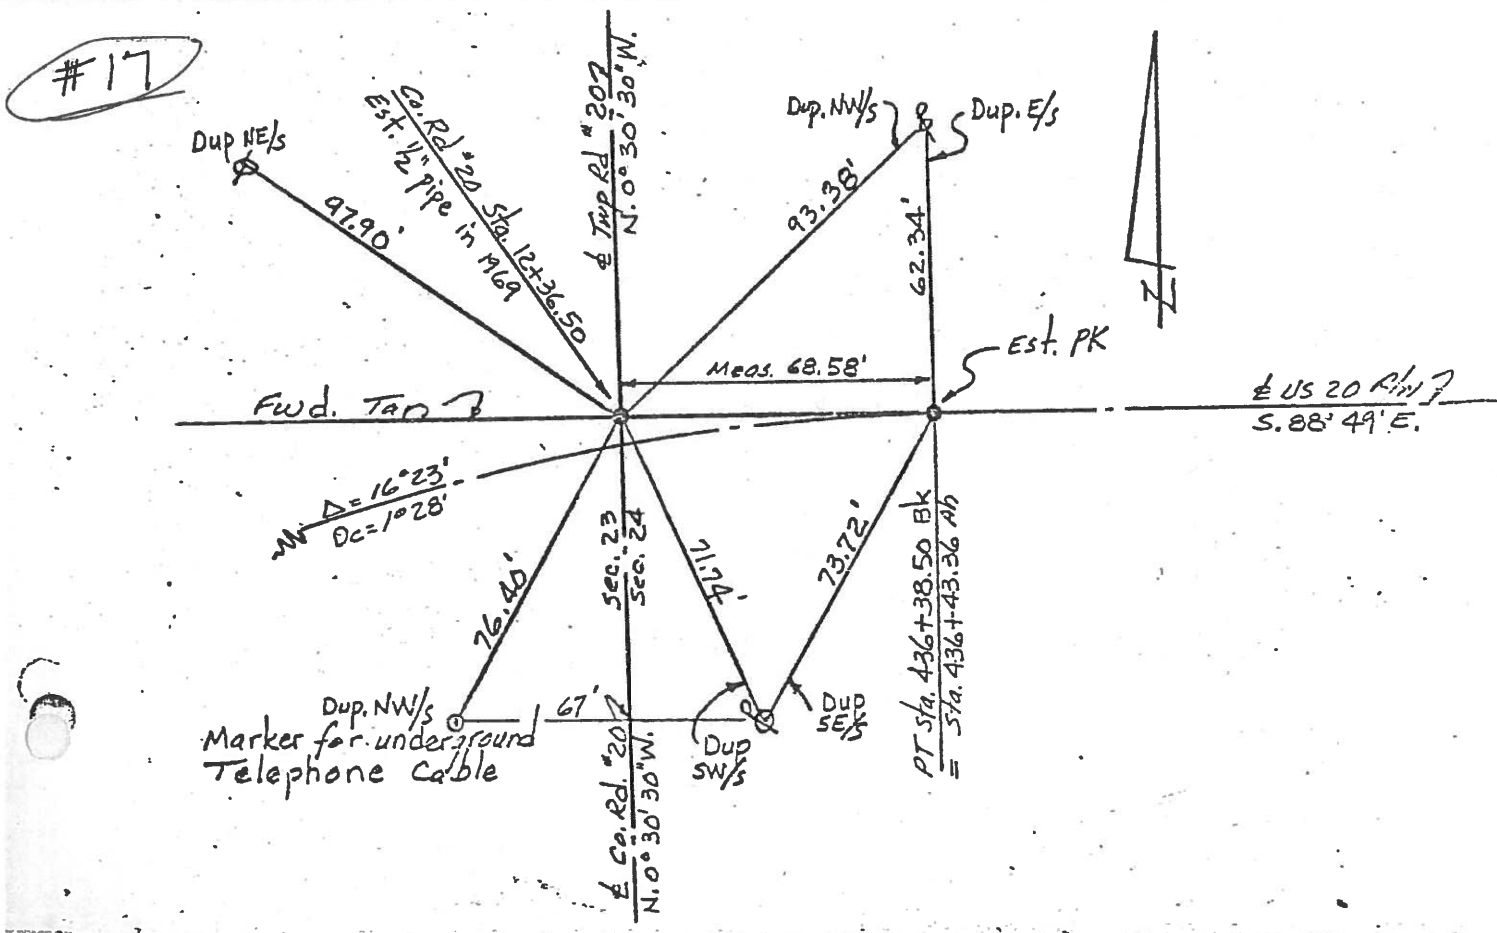 #17
Dup NE/s
97.90'
Co. Rd #20 Sta. 12+36.50
Est. 1/2" pipe in 1969
℄ Twp Rd #207
N. 0° 30' 30" W.
Dup. NW/s
Dup. E/s
93.38'
62.34'
N
Est. PK
Meas. 68.58'
Fwd. Tan
℄ US 20
S. 88° 49' E.
Δ = 16° 23'
Dc = 1° 28'
76.40'
Sec. 23
Sec. 24
71.74'
73.72'
PT Sta. 436+38.50 BK
= Sta. 436+43.36 Ah
Dup. NW/s
67'
Dup
SE/s
Marker for underground
Telephone Cable
Dup
SW/s
℄ Co. Rd. #20
N. 0° 30' 30" W.